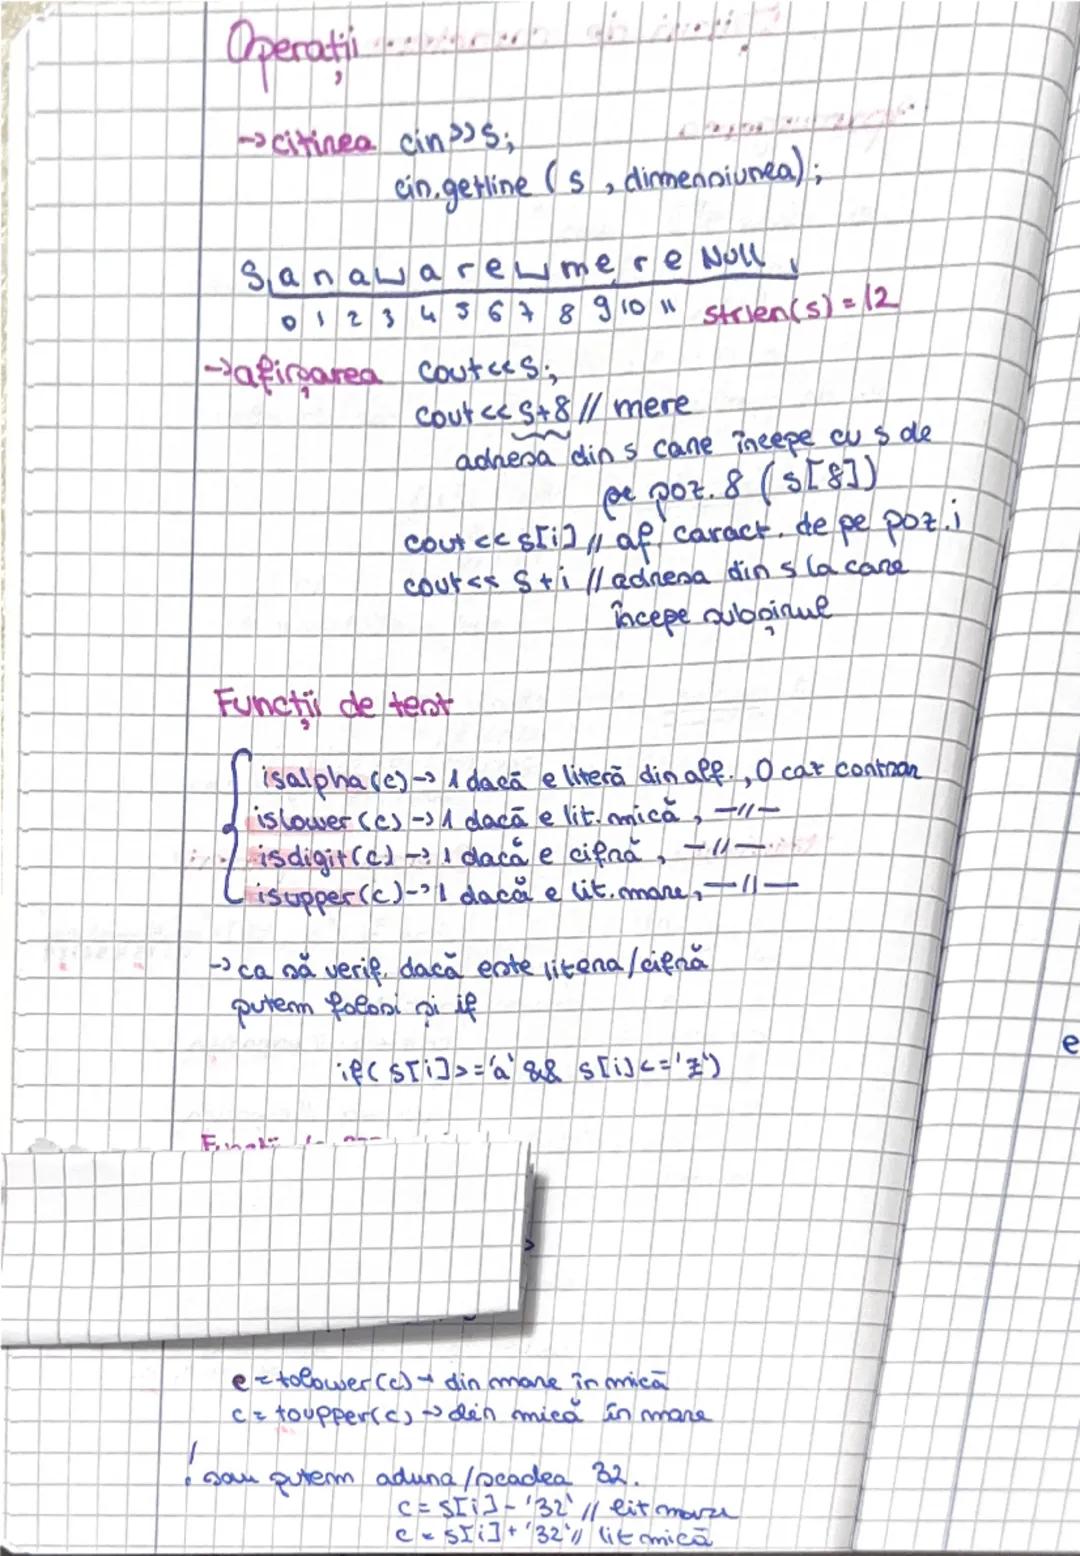 Operații
→ citirea cin>>s;
cin.getline (s, dimensiunea);
s, a n a ⎵ a r e ⎵ m e r e Null
0 1 2 3 4 5 6 7 8 9 10 11 strlen(s) = 12
→ afișarea cout<<s;
cout<<s+8 // mere
adresa din s care începe cu s de
pe poz. 8 (s[8])
cout<<s[i] // af. caract. de pe poz. i
cout<<s+i // adresa din s la care
începe subșirul
Funcții de test
isalpha(c) → 1 dacă e literă din alf., 0 caz contrar
islower(c) → 1 dacă e lit. mică, —//—
isdigit(c) → 1 dacă e cifră, —//—
isupper(c) → 1 dacă e lit. mare, —//—
→ ca să verif. dacă este litera/cifră
putem folosi și if
if( s[i]>='a' && s[i]<='z')
c = tolower(c) → din mare în mică
c = toupper(c) → din mică în mare
! sau putem aduna/scadea 32.
c = s[i] - '32' // lit mare
c = s[i] + '32' // lit mică